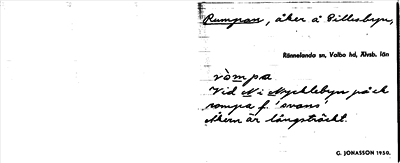 Rumpan, åker å Pillesbyn,
Rännelanda sn, Valbo hd, Älvsb. län
ròmpa
Vid N i Nycklebyn på ck
rompa f. 'svans'
Åkern är långsträckt.
G. JONASSON 1950.